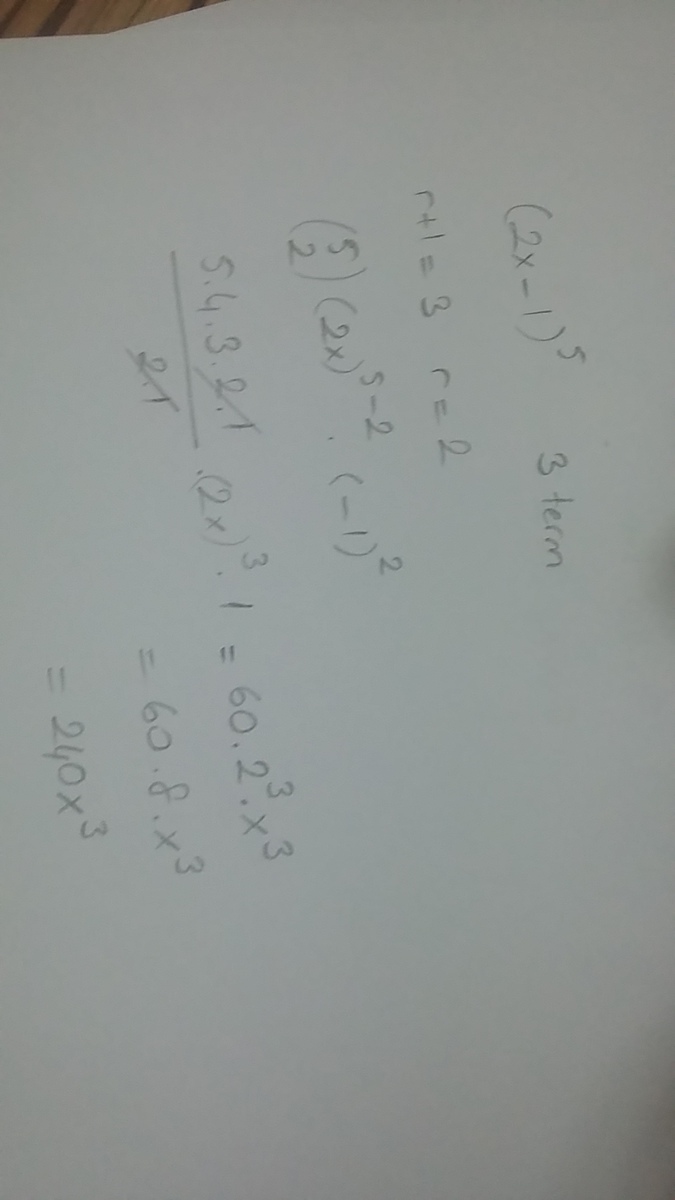 (2x-1)⁵ 3 term
r+1=3 r=2
(5 2) (2x)⁵⁻² . (-1)²
5.4.3.2.1 / 2.1 .(2x)³ . 1 = 60.2³.x³
= 60.8.x³
= 240x³